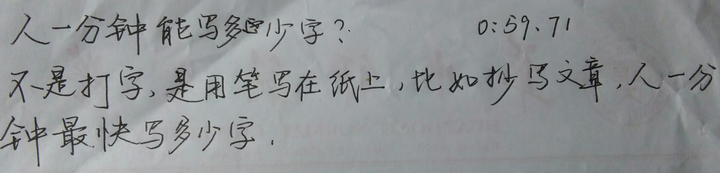 人一分钟能写多少字? 0:59.71
不是打字,是用笔写在纸上,比如抄写文章,人一分
钟最快写多少字.